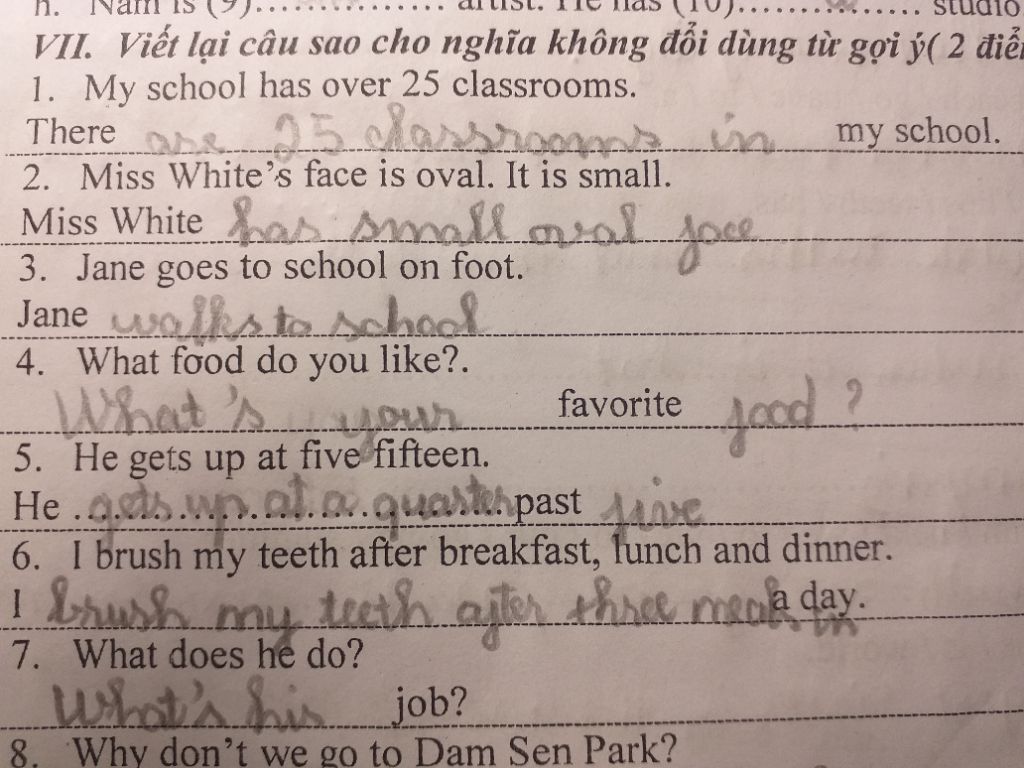 n. Nam is (9)................ artist. He has (10)................ studio
VII. Viết lại câu sao cho nghĩa không đổi dùng từ gợi ý( 2 điể
1. My school has over 25 classrooms.
There are 25 classrooms in my school.
2. Miss White's face is oval. It is small.
Miss White has small oval face
3. Jane goes to school on foot.
Jane walks to school
4. What food do you like?.
What's your favorite food?
5. He gets up at five fifteen.
He gets up at a quarter past five
6. I brush my teeth after breakfast, lunch and dinner.
I brush my teeth after three meals in a day.
7. What does he do?
What's his job?
8. Why don't we go to Dam Sen Park?